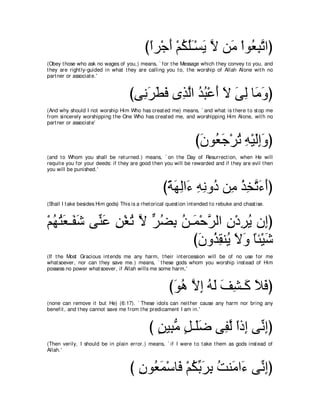 (اتَّبِعُواْ مَن لاَّ يَسْـَلُكُمْ أَجْراً)
(Obey those who ask no wages of you,) means, `for the Message which they convey to you, and
they are rightly-guided in what they are calling you to, the worship of Allah Alone with no
partner or associate.'
(وَمَا لِىَ لاَ أَعْبُدُ الَّذِى فَطَرَنِى)
(And why should I not worship Him Who has created me) means, `and what is there to stop me
from sincerely worshipping the One Who has created me, and worshipping Him Alone, with no
partner or associate'
(وَإِلَيْهِ تُرْجَعُونَ)
(and to Whom you shall be returned.) means, `on the Day of Resurrection, when He will
requite you for your deeds: if they are good then you will be rewarded and if they are evil then
you will be punished.'
(أَءَتَّخِذُ مِن دُونِهِ ءَالِهَةً)
(Shall I take besides Him gods) This is a rhetorical question intended to rebuke and chastise.
(إِن يُرِدْنِ الرَّحْمَـنُ بِضُرٍّ لاَّ تُغْنِ عَنِّى شَفَـعَتُهُمْ
شَيْئاً وَلاَ يُنقِذُونَ)
(If the Most Gracious intends me any harm, their intercession will be of no use for me
whatsoever, nor can they save me.) means, `these gods whom you worship instead of Him
possess no power whatsoever, if Allah wills me some harm,'
(فَلاَ كَـشِفَ لَهُ إِلاَّ هُوَ)
(none can remove it but He) (6:17). `These idols can neither cause any harm nor bring any
benefit, and they cannot save me from the predicament I am in.'
(إِنِّى إِذاً لَّفِى ضَلَـلٍ مُّبِينٍ )
(Then verily, I should be in plain error.) means, `if I were to take them as gods instead of
Allah.'
(إِنِّى ءَامَنتُ بِرَبِّكُمْ فَاسْمَعُونِ )